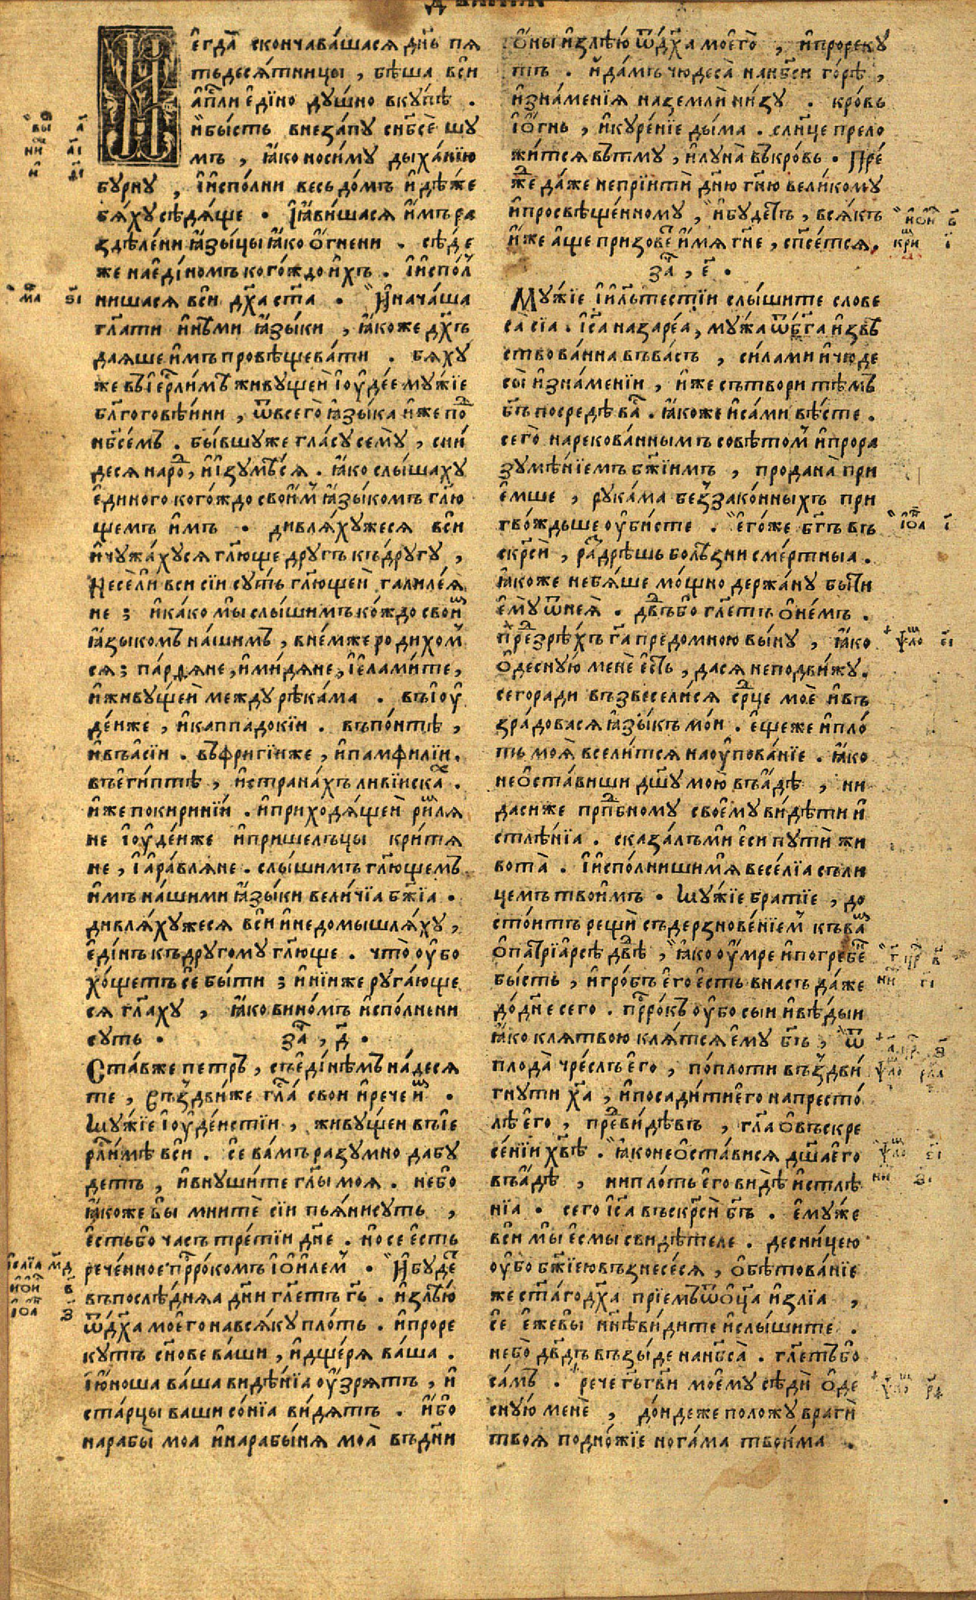 И
є҆гда̀ скончава́шася дн҃ь пѧ
тьдесѧ́тницы , бѣ́ша всѝ
а҆пⷭ҇ли є҆ди́но дꙋ́шно вкꙋ́пѣ .
и҆бы́сть внеза́пꙋ снб҃сѐ шꙋ
мъ , ꙗ҆́ко носи́мꙋ дыха́нїю
бꙋ́рнꙋ , и҆и҆спо́лни весь до́мъ и҆дѣ́же
бѧ́хꙋ сѣдѧ́ще . и҆ꙗ҆ви́шася и҆̀мъ ра
здѣле́ни ꙗ҆зы́цы ꙗ҆́ко ѻ҆́гнени . сѣ́де
же нае҆ди́номъ кого́ждо и҆́хъ . и҆и҆спо́л
нишася всѝ дх҃а ст҃а . И҆нача́ша
гл҃ати и҆ны́ми ꙗ҆зы́ки , ꙗ҆́коже дх҃ъ
даѧ́ше и҆́мъ провѣщева́ти . бѧ́хꙋ
же въі҆ерⷭ҇ли́мѣ живꙋ́щеи і҆ꙋде́е мꙋ́жїе
бл҃гоговѣ́йни , ѿвсего̀ ꙗ҆зы́ка и҆́же поⷣ
нб҃се́мъ . бы́вшꙋже гла́сꙋ семꙋ̀ , сни́
деся наро́ⷣ , и҆и҆зꙋмѣ́ся . ꙗ҆́ко слы́шахꙋ
є҆ди́ного кого́ждо свои́мъ ꙗ҆зы́комъ гл҃ю
щемъ и҆́мъ . дивлѧ́хꙋжеся всѝ
и҆чꙋжа́хꙋся гл҃юще дрꙋ́гъ къдрꙋ́гꙋ ,
Несе́ли вси сїи сꙋть гл҃ющеи̑ галиле́ѧ
не ; и҆ка́ко мы̀ слы́шимъ ко́ждо свои́ⷨ
ꙗ҆зы́комъ на́шимъ , вне́мже роди́хом
ся ; па́рдѧне , и҆ми́дѧне , и҆є҆лами́те ,
и҆живꙋ́щеи междꙋ рѣка́ма . въі҆ꙋ
де́иже , и҆каппадокїи . въпо́нтѣ ,
и҆въа҆сі́и . въфриги́иже , и҆памфилі́и .
въе҆ги́птѣ , и҆страна́хъ ливі́йскаⷯ
и҆́же покирині́и . и҆приходѧ́щеи ри́млѧ
не і҆ꙋде́иже и҆пришелъцы кри́тѧ
не , и҆а҆ра́влѧне . слы́шимъ гл҃ющемъ
и҆́мъ на́шими ꙗ҆зы́ки вели́чїа бж҃їа .
дивлѧ́хꙋжеся всѝ и҆недомышлѧ́хꙋ ,
є҆ди́нъ къдрꙋго́мꙋ гл҃юще . что̀ ꙋ҆́бо
хо́щетъ сѐ бы́ти ; и҆ні́иже рꙋга́юще
ся гл҃ахꙋ , ꙗ҆́ко вино́мъ и҆спо́лнени
сꙋть . заⷱ҇ , д҃ .
Ста́вже петръ , съе҆динѣ́мъ на́деся
те , въздви́же гла́съ свои и҆рече и҆́мъ .
Мꙋ́жїе і҆ꙋде́йстїи , живꙋ́щеи въі҆е
рⷭ҇ли́мѣ всѝ . се ва́мъ разꙋ́мно да бꙋ
детъ , и҆внꙋши́те гл҃ы моѧ̀ . не́бо
ꙗ҆́коже вы̀ мнитѐ сїи пьѧ́ни сꙋть ,
є҆́стьбо ча́съ тре́тїи дн҃е . но се є҆сть
рече́нное пррⷪ҇комъ і҆ѡи́лемъ . И҆бꙋ́деⷮ
въпослѣ́днѧа дн҃и гл҃етъ гь҃ . и҆злїю̀
ѿдх҃а моегѡ̀ навсѧ́кꙋ пло́ть . и҆проре
кꙋтъ сн҃ове ва́ши , и҆дще́рѧ ва́ша .
и҆ю҆́ноша ва́ша видѣ́нїа ꙋ҆́зрѧтъ , и҆
ста́рцы ва́ши со́нїа ви́дѧтъ . и҆́бо
нарабы̀ моа̀ и҆нарабы́нѧ моа̀ въдн҃и
ѻ҆́ны и҆злїю̀ ѿдх҃а моегѡ̀ , и҆прорекꙋ́
тъ . и҆да́мъ чюдеса̀ нанб҃си го́рѣ ,
и҆зна́менїѧ наземлѝ ни́зꙋ . кро́вь
і҆ѻ҆́гнь , и҆кꙋре́нїе ды́ма . сл҃нце прело
жи́тся вътмꙋ̀ , и҆лꙋна̀ въкро́вь . Пре́
ⷤде да́же непрїи́ти дн҃ю гн҃ю вели́комꙋ
и҆просвѣще́нномꙋ , и҆бꙋ́детъ , всѧ́къ
и҆́же а҆́ще призове́ⷮ и҆́мѧ гн҃е , сп҃се́тся .
заⷱ҇ , є҃ .
Мꙋ́жїе і҆и҃льтестїи слы́шите слове
са̀ сїа̀ . і҆с҃а назаре́а , мꙋ́жа ѿбг҃а и҆звѣ́
ствова́нна въва́съ , си́лами и҆чюде
сы̀ и҆зна́менїи , и҆́же сътвори тѣ́мъ
бг҃ъ посредѣ̀ ва́съ . ꙗ҆́коже и҆са́ми вѣ́сте .
сего̀ нарекова́ннымъ совѣ́томъ и҆прора
зꙋмѣ́нїемъ бж҃їимъ , про́дана при
є҆́мше , рꙋка́ма беззако́нныхъ при
гво́ждьше ꙋ҆би́сте . є҆го́же бг҃ъ въ
скр҃си , раздрѣ́шь болѣ́зни сме́ртныа .
ꙗ҆́коже небѧ́ше мо́щно держа́нꙋ бы́ти
є҆мꙋ̀ ѿнеѧ̀ . дв҃дъбо гл҃етъ ѻ҆не́мъ .
прⷣезрѣ́хъ гд҃а предомно́ю вы́нꙋ , ꙗ҆́ко
ѻ҆деснꙋ́ю менѐ є҆́сть , дася неподви́жꙋ .
сегоради възвеселися срⷣце моѐ и҆въ
зра́довася ꙗ҆зы́къ мо́и . є҆щеже и҆пло́
ть моѧ̀ всели́тся наꙋ҆пова́нїе . ꙗ҆́ко
неѡ҆ста́виши дш҃ꙋ мою̀ въа҆́дѣ , ни
даси́же прпⷣбномꙋ своемꙋ ви́дѣти и҆
стлѣ́нїа . сказа́лъми є҆сѝ пꙋтѝ жи
вота̀ . и҆и҆спо́лнишимѧ весе́лїа съли
це́мъ твои́мъ . Мꙋ́жїе бра́тїе , до
сто́итъ рещѝ съдерзнове́нїемъ къва́мъ
ѻ҆патрїа́рсѣ дв҃дѣ , ꙗ҆́ко ꙋ҆́мре и҆погребе́нъ
бы́сть , и҆гро́бъ є҆гѡ̀ є҆сть внасъ да́же
до дн҃е сего . прⷪ҇рокъ ꙋ҆бо сыи и҆вѣ́дыи
ꙗ҆́ко клѧ́твою клѧ́тся є҆мꙋ̀ бг҃ъ , ѿ
плода̀ чре́слъ є҆гѡ̀ , попло́ти въздви́
гнꙋти хрⷭ҇та̀ , и҆посади́ти є҆го̀ напресто́
лѣ є҆гѡ̀ , предви́дѣвъ , гла́ ѻ҆въскре
се́нїи хв҃ѣ . ꙗ҆́ко неѡ҆ста́вися дш҃а є҆гѡ̀
въа҆́дѣ , нипло́ть є҆гѡ̀ ви́дѣ и҆стлѣ́
нїа . сего̀ і҆с҃а въскр҃си бг҃ъ . є҆мꙋ́же
всѝ мы̀ є҆смы свидѣ́теле . десни́цею
ꙋ҆́бо бж҃їею възнесе́ся , ѻ҆бѣтова́нїе
же ст҃агодх҃а прїе́мъ ѿоц҃а и҆злїа̀ ,
сѐ є҆́жевы̀ и҆нн҃ѣ ви́дите и҆слы́шите .
небо дв҃дъ възы́де нанб҃са̀ . гл҃етъбо
са́мъ . рече гь҃ гв҃и моемꙋ̀ сѣдѝ ѻ҆де
снꙋ́ю менѐ , до́ндеже положꙋ̀ врагѝ
твоѧ̀ подно́жїе нога́ма твои́ма .